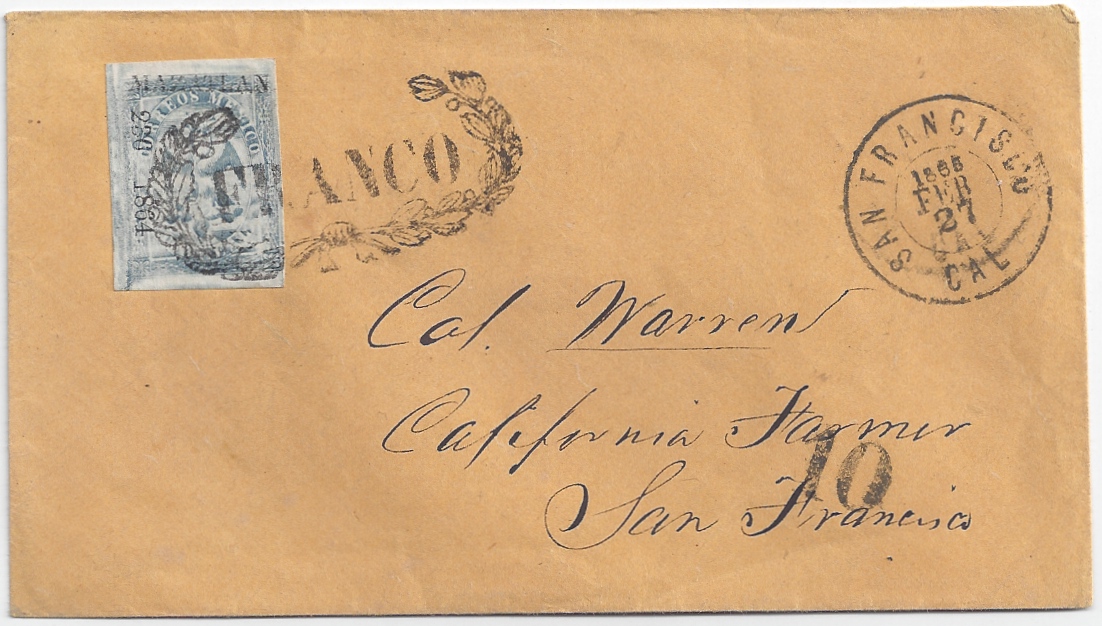 MAZATLAN
CORREOS MEJICO
250 1864
FRANCO
SAN FRANCISCO
1865
FEB
27
CAL
Col. Warren
California Farmer
10
San Francisco